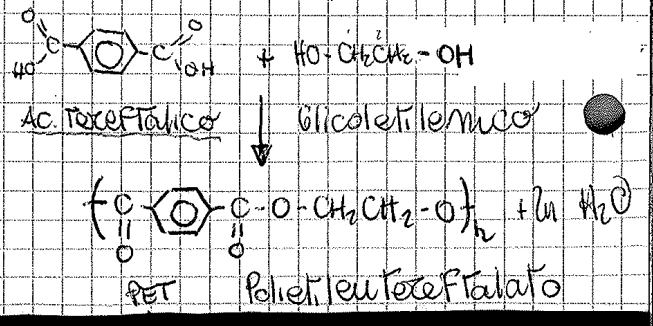 HO-C(=O)-⌬-C(=O)-OH + HO-CH₂CH₂-OH
Ac. Tereftalico Glicoletilenico
(-C(=O)-⌬-C(=O)-O-CH₂CH₂-O-)n + 2n H₂O
PET Polietilentereftalato